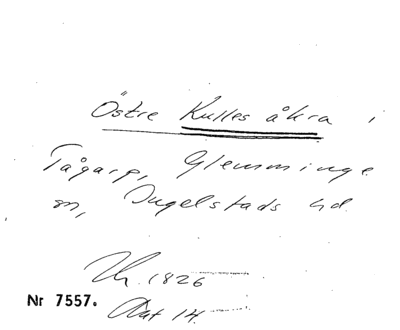 Östre Kulles åkra i
Tågarp, Glemminge
sn, Ingelstads hd.
1826
Nr 7557.
14.